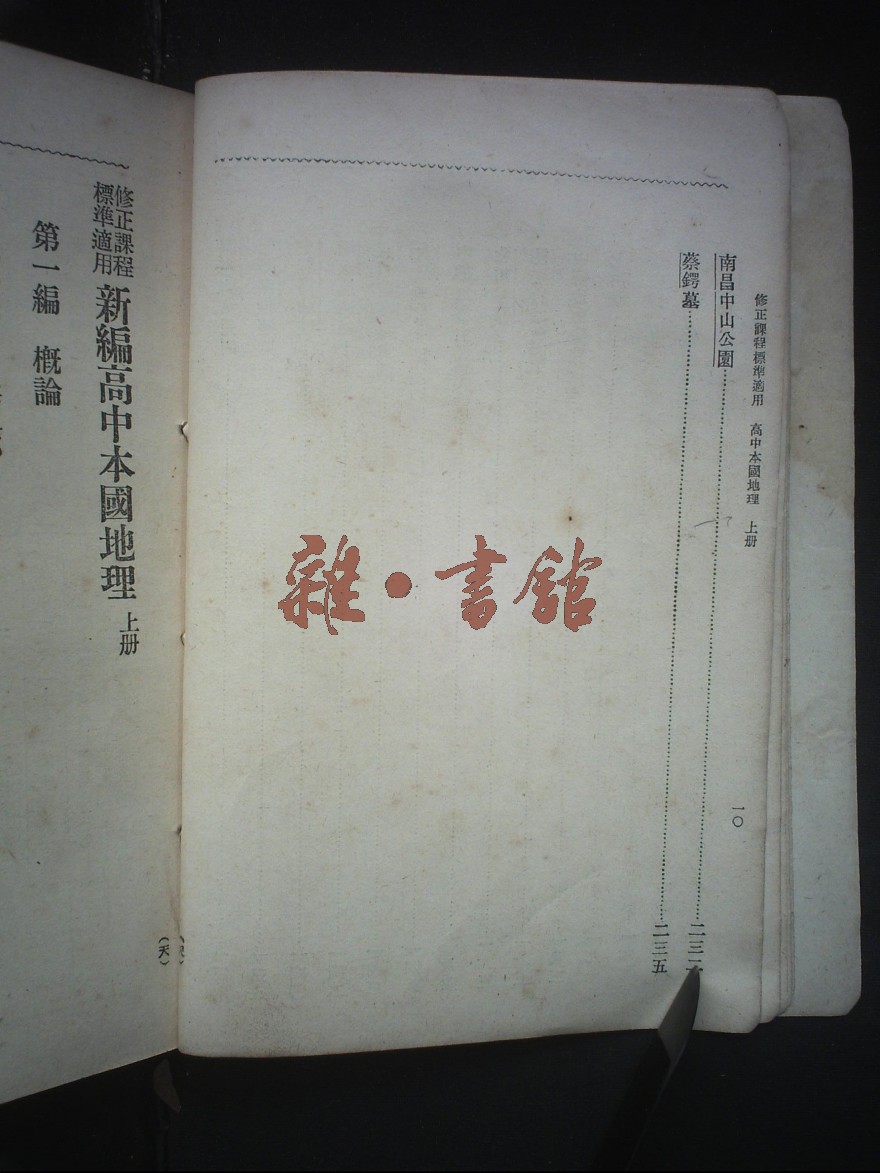 修正課程標準適用　高中本國地理　上册
一〇
南昌中山公園……二三二
蔡鍔墓……二三五
雜・書館
修正課程標準適用 新編高中本國地理 上册
第一編　概論
(天)